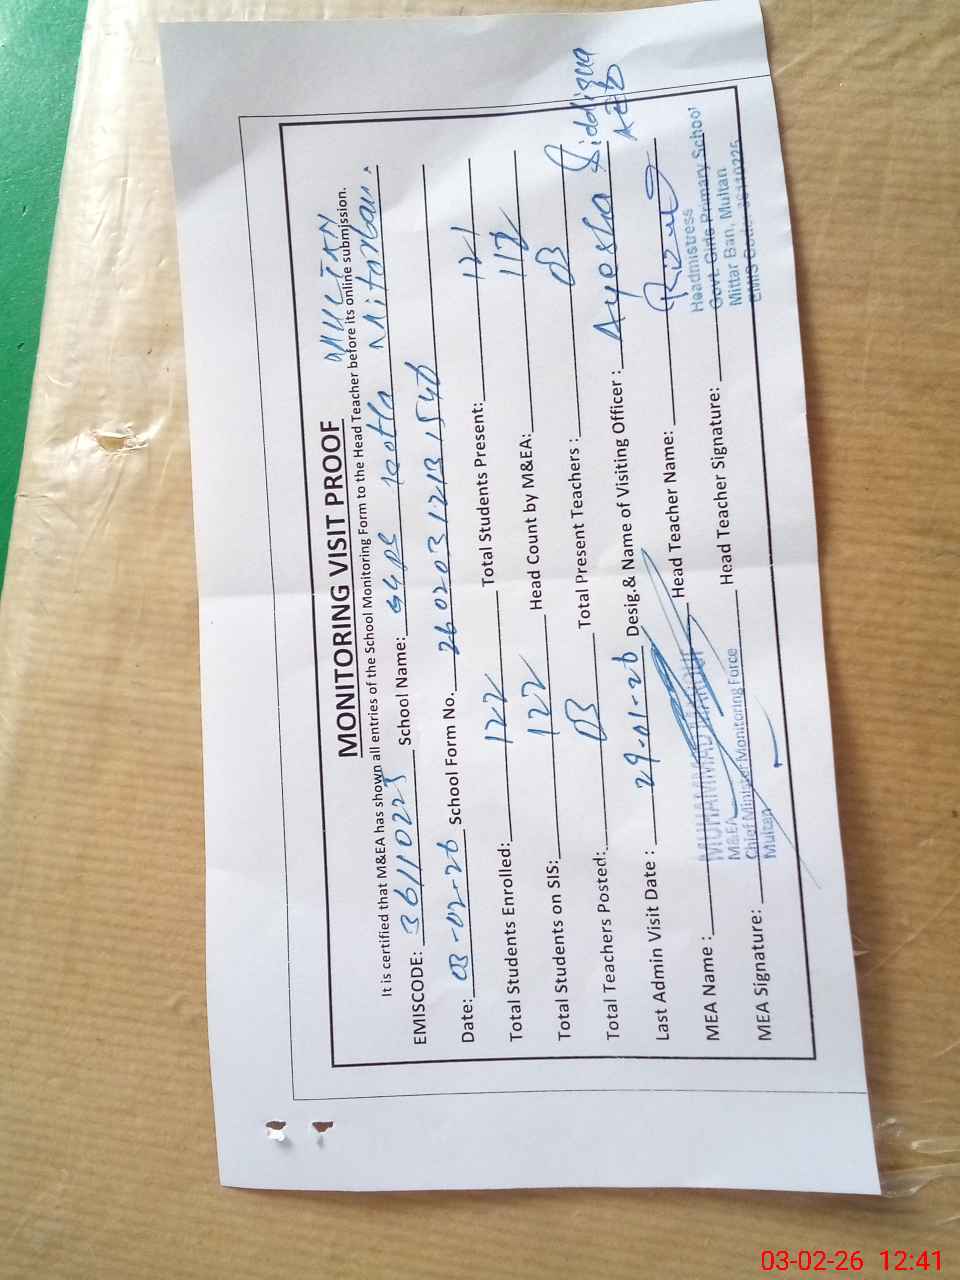 MULTAN
MONITORING VISIT PROOF
It is certified that M&EA has shown all entries of the School Monitoring Form to the Head Teacher before its online submission.
EMISCODE: 36110225 School Name: GGPS Kotla Mitarban.
Date: 03-02-26 School Form No. 26020312131546
Total Students Enrolled: 122 Total Students Present: 121
Total Students on SIS: 122 Head Count by M&EA: 112
Total Teachers Posted: 03 Total Present Teachers: 03
Last Admin Visit Date: 29-01-26 Desig.& Name of Visiting Officer: Ayesha Siddiqua AEO
MEA Name: MUHAMMAD Head Teacher Name:
M&EA
Chief Minister Monitoring Force
Multan
MEA Signature: Head Teacher Signature:
Headmistress
Govt. Girls Primary School
Mittar Ban, Multan
EMIS Code: 36110225
03-02-26 12:41